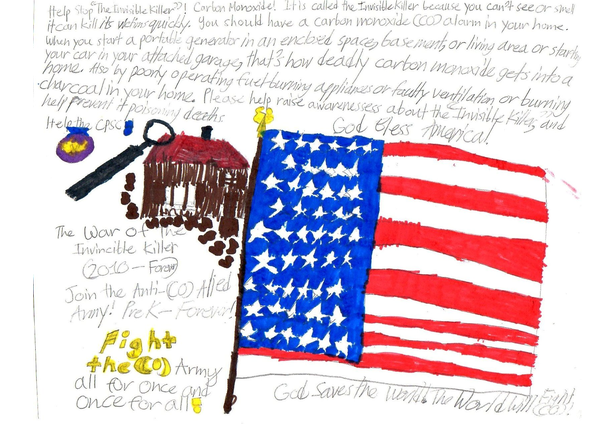 Help Stop "The Invisible Killer"! Carbon Monoxide! It is called the Invisible Killer because you can't see or smell
it can kill its victims quickly. You should have a carbon monoxide (CO) alarm in your home.
When you start a portable generator in an enclosed space, basement, or living area or starting
your car in your attached garage, that's how deadly carbon monoxide gets into a
home. Also by poorly operating fuel-burning appliances or faulty ventilation or burning
charcoal in your home. Please help raise awareness about the "Invisible Killer" and
help prevent it poisoning deaths
Help the CPSC!
God Bless America!
The War of The
Invincible Killer
(2010-Forever)
Join the Anti-(CO) Allied
Army! Pre K-Forever!
Fight
the (CO) Army
all for once and
once for all!
God saves the World! The World will Fight
(CO)!